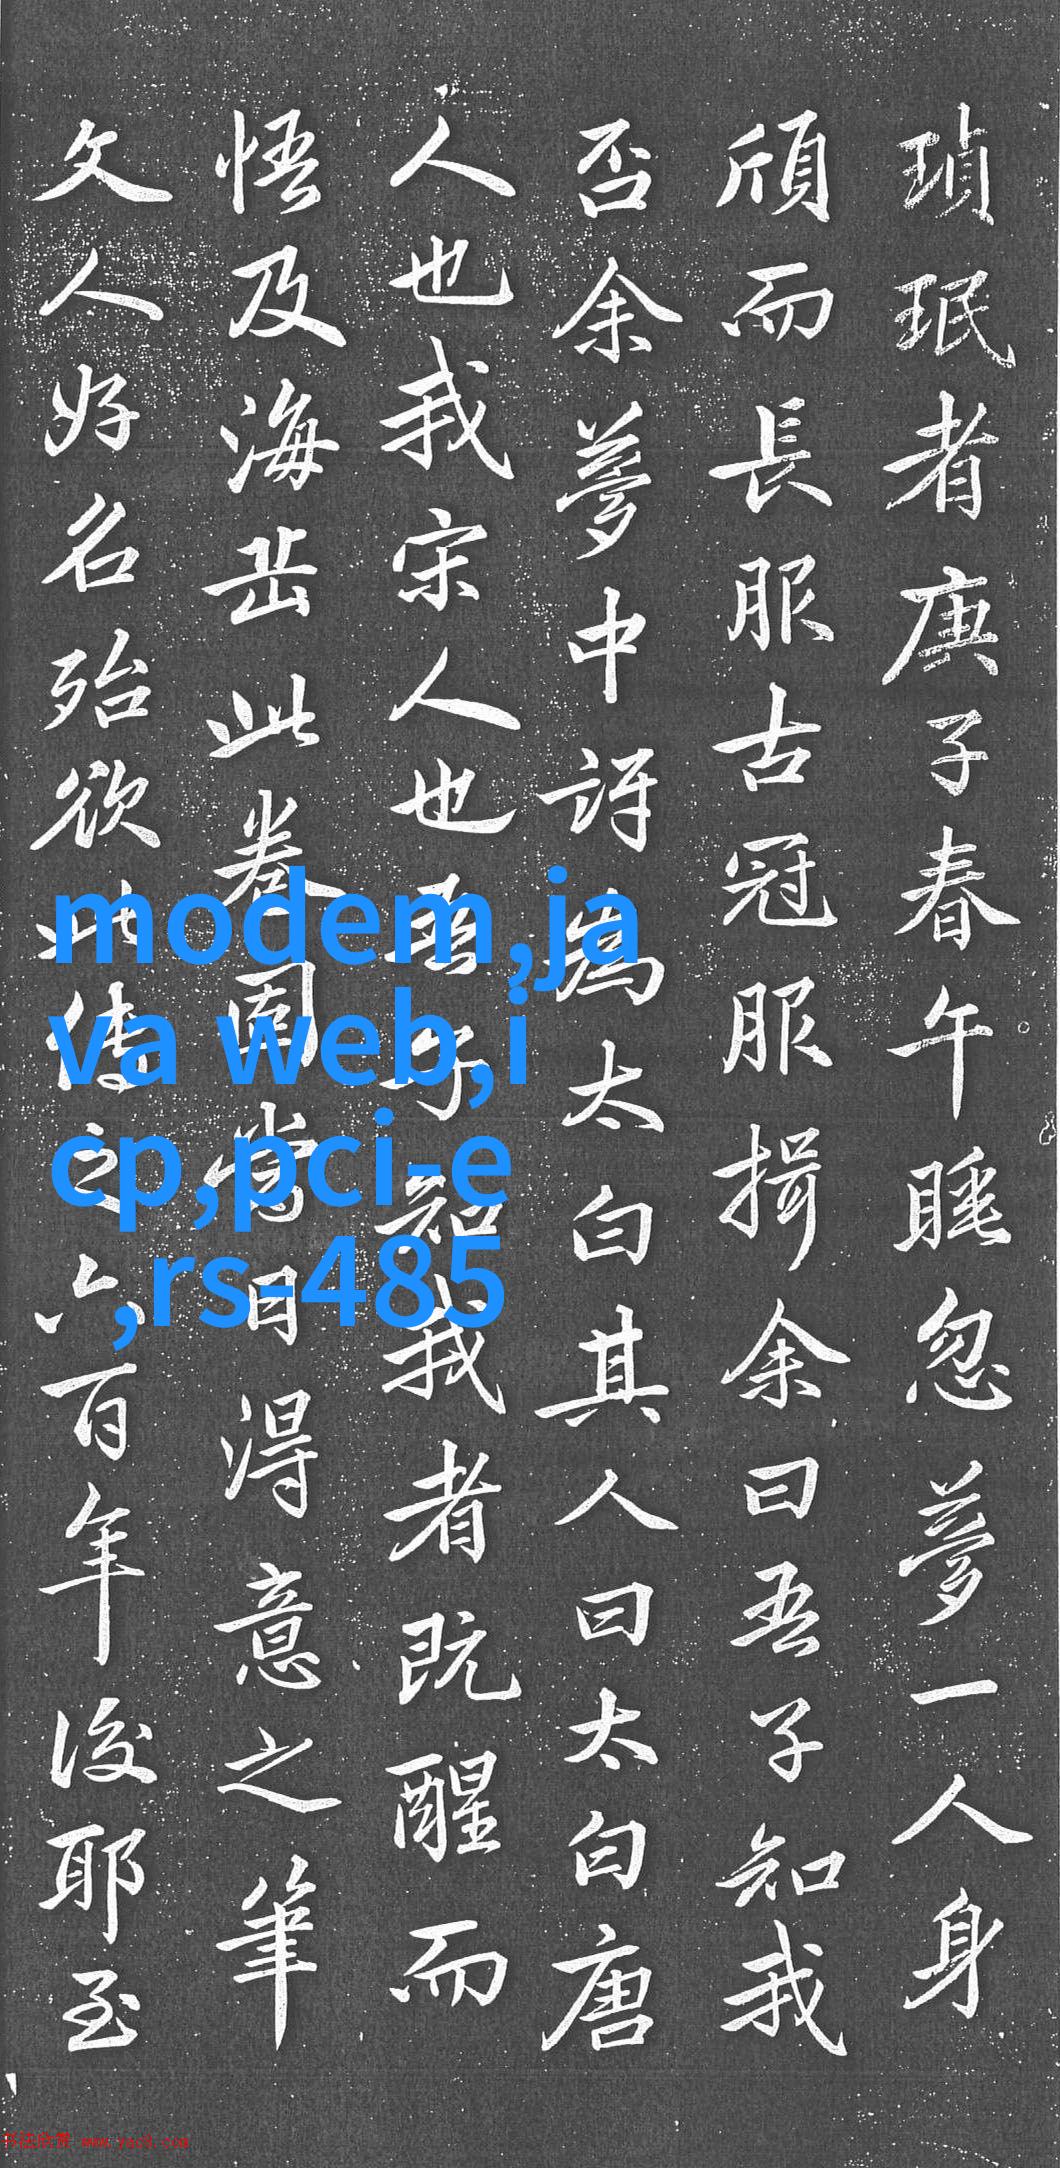 珉者庚子春午睡忽夢一人身
頎而長服古冠服揖余曰吾子知我
否余夢中訝為太白其人曰太白唐
人也我宋人也吾知我者既醒而
悟及海岳此卷固當日得意之筆
文人好名殆欲此傳之六百年後耶至
modem,ja
va web,i
cp,pci-e
,rs-485
书法欣赏 www.yac8.com